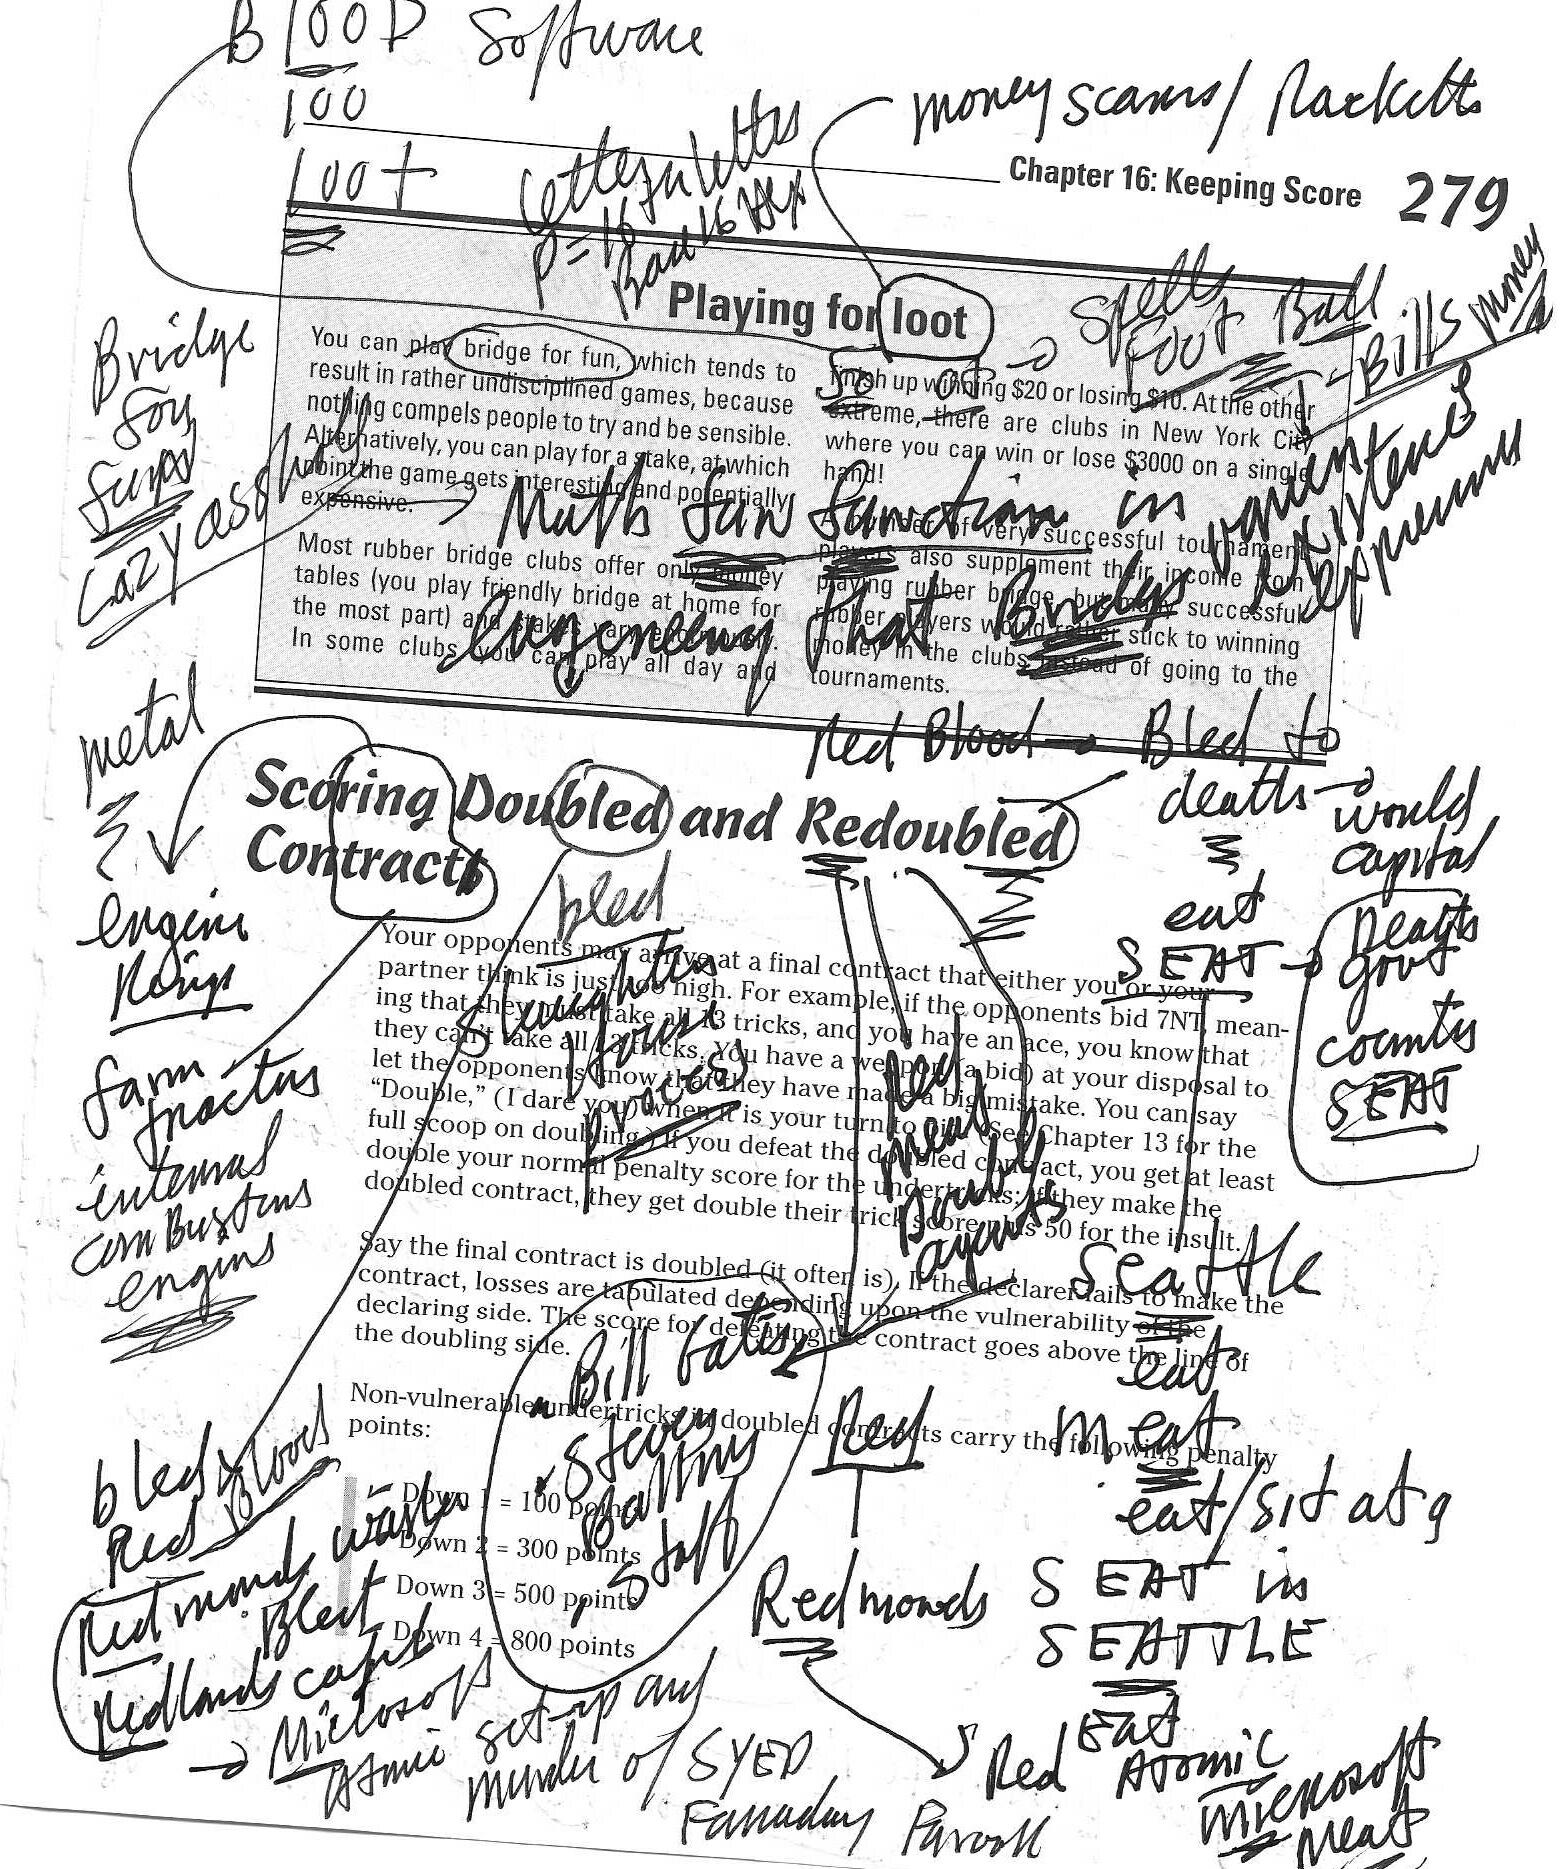 B 100D Software
100
100+
money scams/ Racketts
Chapter 16: Keeping Score 279
letters
P=16
16 Hex
Playing for loot
Spells
FOOT Ball
Bills money
You can play bridge for fun, which tends to
result in rather undisciplined games, because
nothing compels people to try and be sensible.
Alternatively, you can play for a stake, at which
point the game gets interesting and potentially
expensive.
Most rubber bridge clubs offer only money
tables (you play friendly bridge at home for
the most part) and stakes vary enormously.
In some clubs you can play all day and
finish up winning $20 or losing $10. At the other
extreme, there are clubs in New York City
where you can win or lose $3000 on a single
hand!
A number of very successful tournament
players also supplement their income from
playing rubber bridge, but many successful
rubber players would rather stick to winning
money in the clubs instead of going to the
tournaments.
So at
Bridge
for
Lazy ass
Math fun function in
that Bridge
existence
Red Blood → Bled to
deaths → would
capital
eat
SEAT →
govt
counter
SEAT
metal
engine
Rings
farm
tractus
internal
comBustons
engins
Scoring Doubled and Redoubled
Contracts
bled
Slaughter
House
process
Your opponents may arrive at a final contract that either you or your
partner think is just too high. For example, if the opponents bid 7NT, mean-
ing that they must take all 13 tricks, and you have an ace, you know that
they can't take all 13 tricks. You have a weapon (a bid) at your disposal to
let the opponents know that they have made a big mistake. You can say
“Double,” (I dare you) when it is your turn to bid. (See Chapter 13 for the
full scoop on doubling.) If you defeat the doubled contract, you get at least
double your normal penalty score for the undertricks; if they make the
doubled contract, they get double their trick score plus 50 for the insult.
Red
meat
Double
agents
Say the final contract is doubled (it often is). If the declarer fails to make the
contract, losses are tabulated depending upon the vulnerability of the
declaring side. The score for defeating the contract goes above the line of
the doubling side.
Seattle
eat
Bill Gates
Steven
Staff
Non-vulnerable undertricks in doubled contracts carry the following penalty
points:
Down 1 = 100 points
Down 2 = 300 points
Down 3 = 500 points
Down 4 = 800 points
Red
Meat
eat/sit at a
Redmonds SEAT in
SEATTLE
Eat
bled
Red Blood
Redmonds
Redlands
→ Microsoft
Atomic set-up and
murder of SYED
Farraday Farook
Red Atomic
Microsoft
Meat